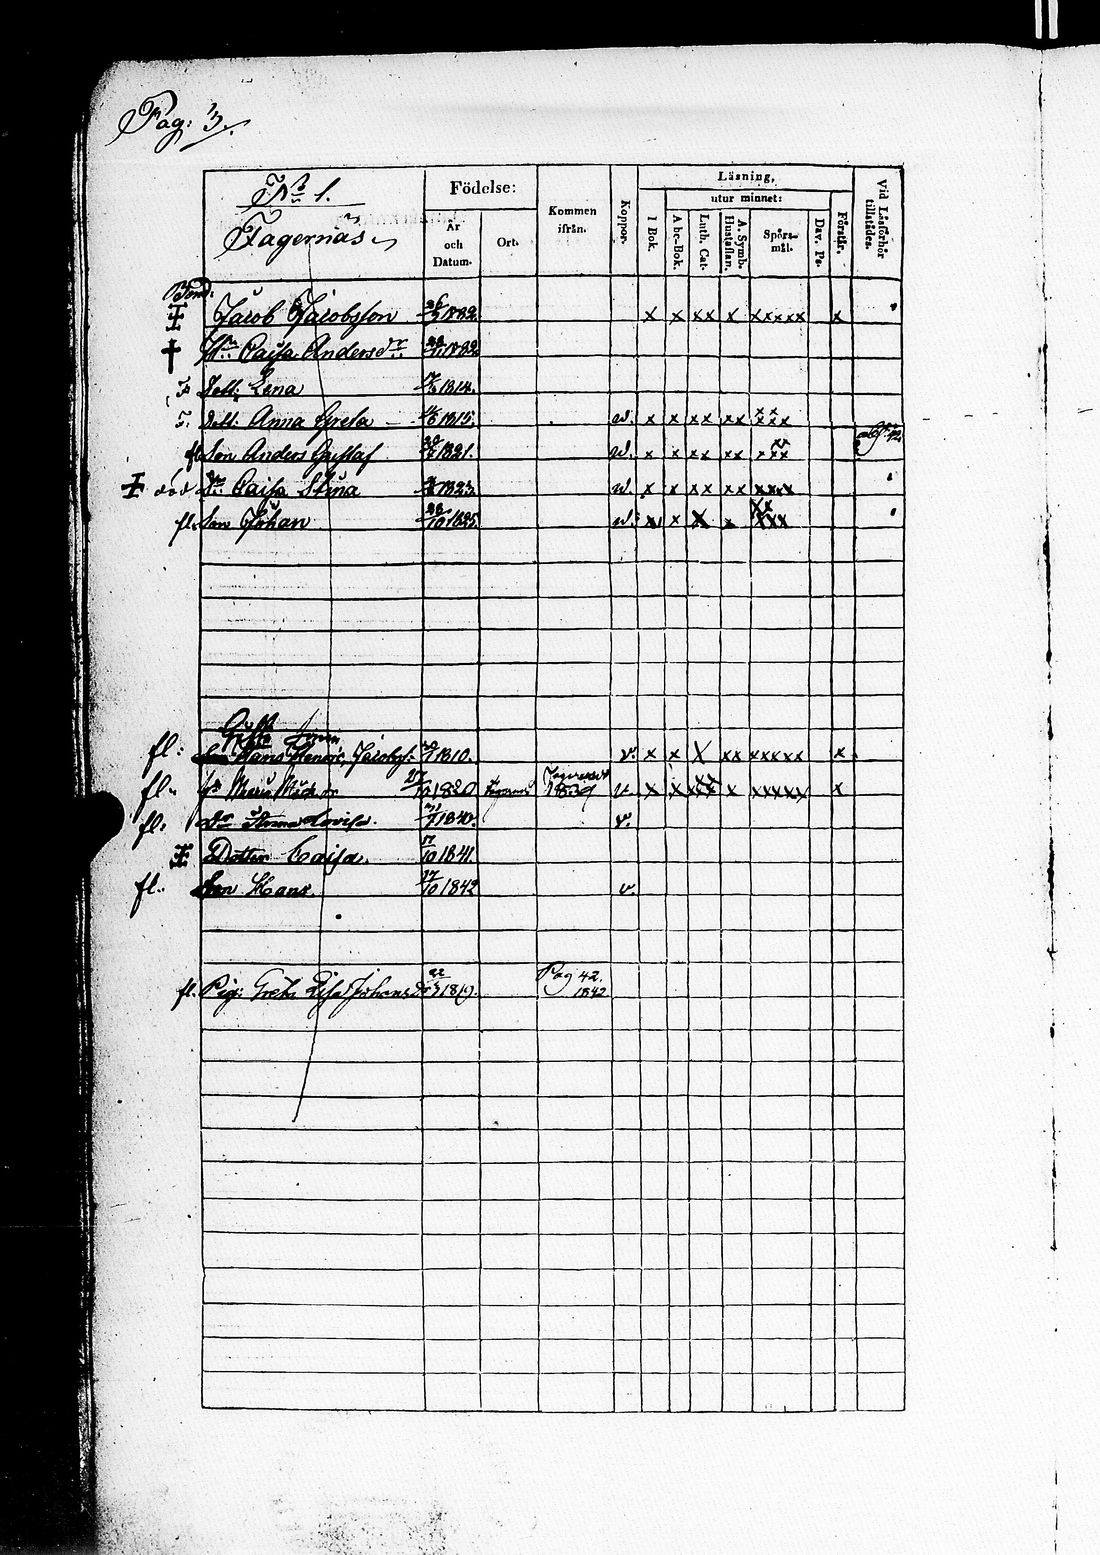 Pag: 3.
No 1.
Fagernäs
Födelse:
År och Datum.
Ort.
Kommen ifrån.
Koppor.
Läsning,
utur minnet:
I Bok.
Abc-Bok.
Luth. Cat.
A. Symb. Hustaflan.
Spörs-mål.
Dav. Ps.
Förstår.
Vid Läsförhör tillstädes.
Jacob Jacobsson 1782. x x xx x xxxxx x
Caisa Andersdr 1782.
Dott: Lena 1814.
Dott: Anna Greta 1815. v. x x xx xx xxxxx
fl. Son Anders Gustaf 1821. v. x x xx xx xxxxx
död Dr Caisa Stina 1823. v. x x xx xx xxxx
fl. Son Johan 10 1825. v. x x x x xxxxx
fl: Hans Henric Jacobs: 1810. v. x x x xx xxxxx x
fl. Maria 1820 1839 v x x x xxxxx x
fl: Dr Anna Lovisa. 1840. v.
Dotter Caisa. 17/10 1841.
fl. Son Hans. 17/10 1842 v.
fl. Pig: Greta Lisa Johansdr 22 1819. Pag 42. 1842